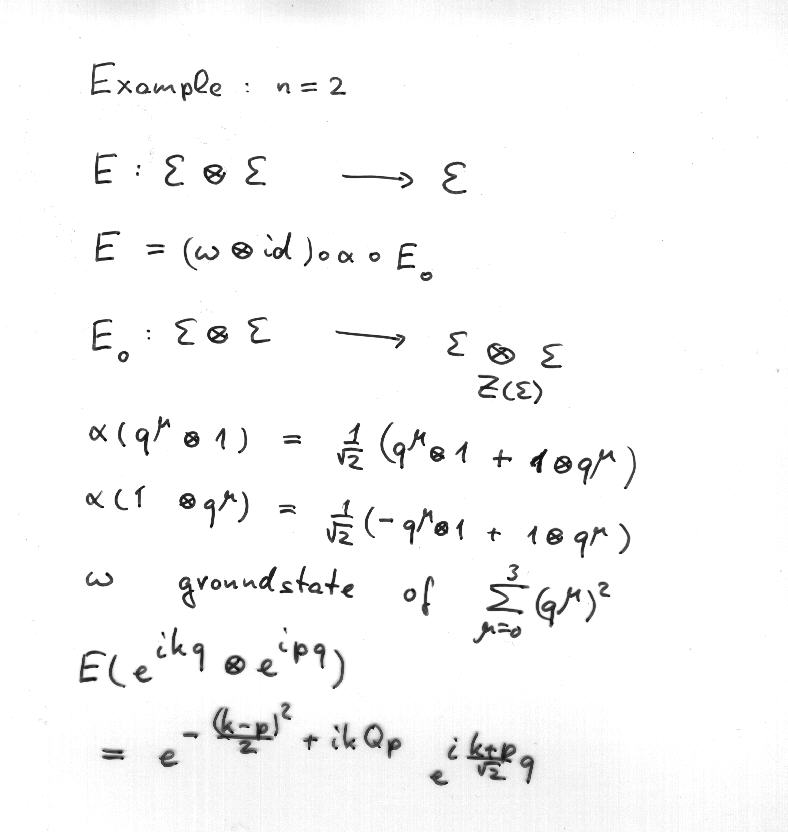 Example : n = 2
E : Ɛ ⊗ Ɛ ⟶ Ɛ
E = (ω ⊗ id) ∘ α ∘ E₀
E₀ : Σ ⊗ Σ ⟶ Σ ⊗_{Z(Σ)} Σ
α(q^μ ⊗ 1) = 1/√2 (q^μ ⊗ 1 + 1 ⊗ q^μ)
α(1 ⊗ q^μ) = 1/√2 (- q^μ ⊗ 1 + 1 ⊗ q^μ)
ω groundstate of ∑_{μ=0}^{3} (q^μ)²
E(e^{ikq} ⊗ e^{ipq})
= e^{- (k-p)²/2 + ikQp} e^{i (k+p)/√2 q}